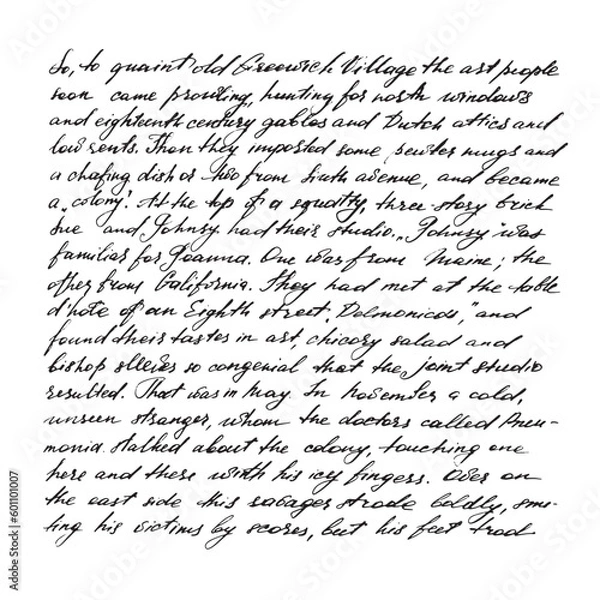 So, to quaint old Greenwich Village the art people
soon came prowling, hunting for north windows
and eighteenth century gables and Dutch attics and
low rents. Then they imported some pewter mugs and
a chafing dish or two from Sixth avenue, and became
a „colony". At the top of a squatty, three-story brick
Sue and Johnsy had their studio. „Johnsy" was
familiar for Joanna. One was from Maine; the
other from California. They had met at the table
d'hote of an Eighth street „Delmonicos," and
found their tastes in art, chicory salad and
bishop sleeves so congenial that the joint studio
resulted. That was in May. In November a cold,
unseen stranger, whom the doctors called Pneu-
monia stalked about the colony, touching one
here and there with his icy fingers. Over on
the east side this ravager strode boldly, smi-
ting his victims by scores, but his feet trod
Adobe Stock | #601101007
Adobe Stock